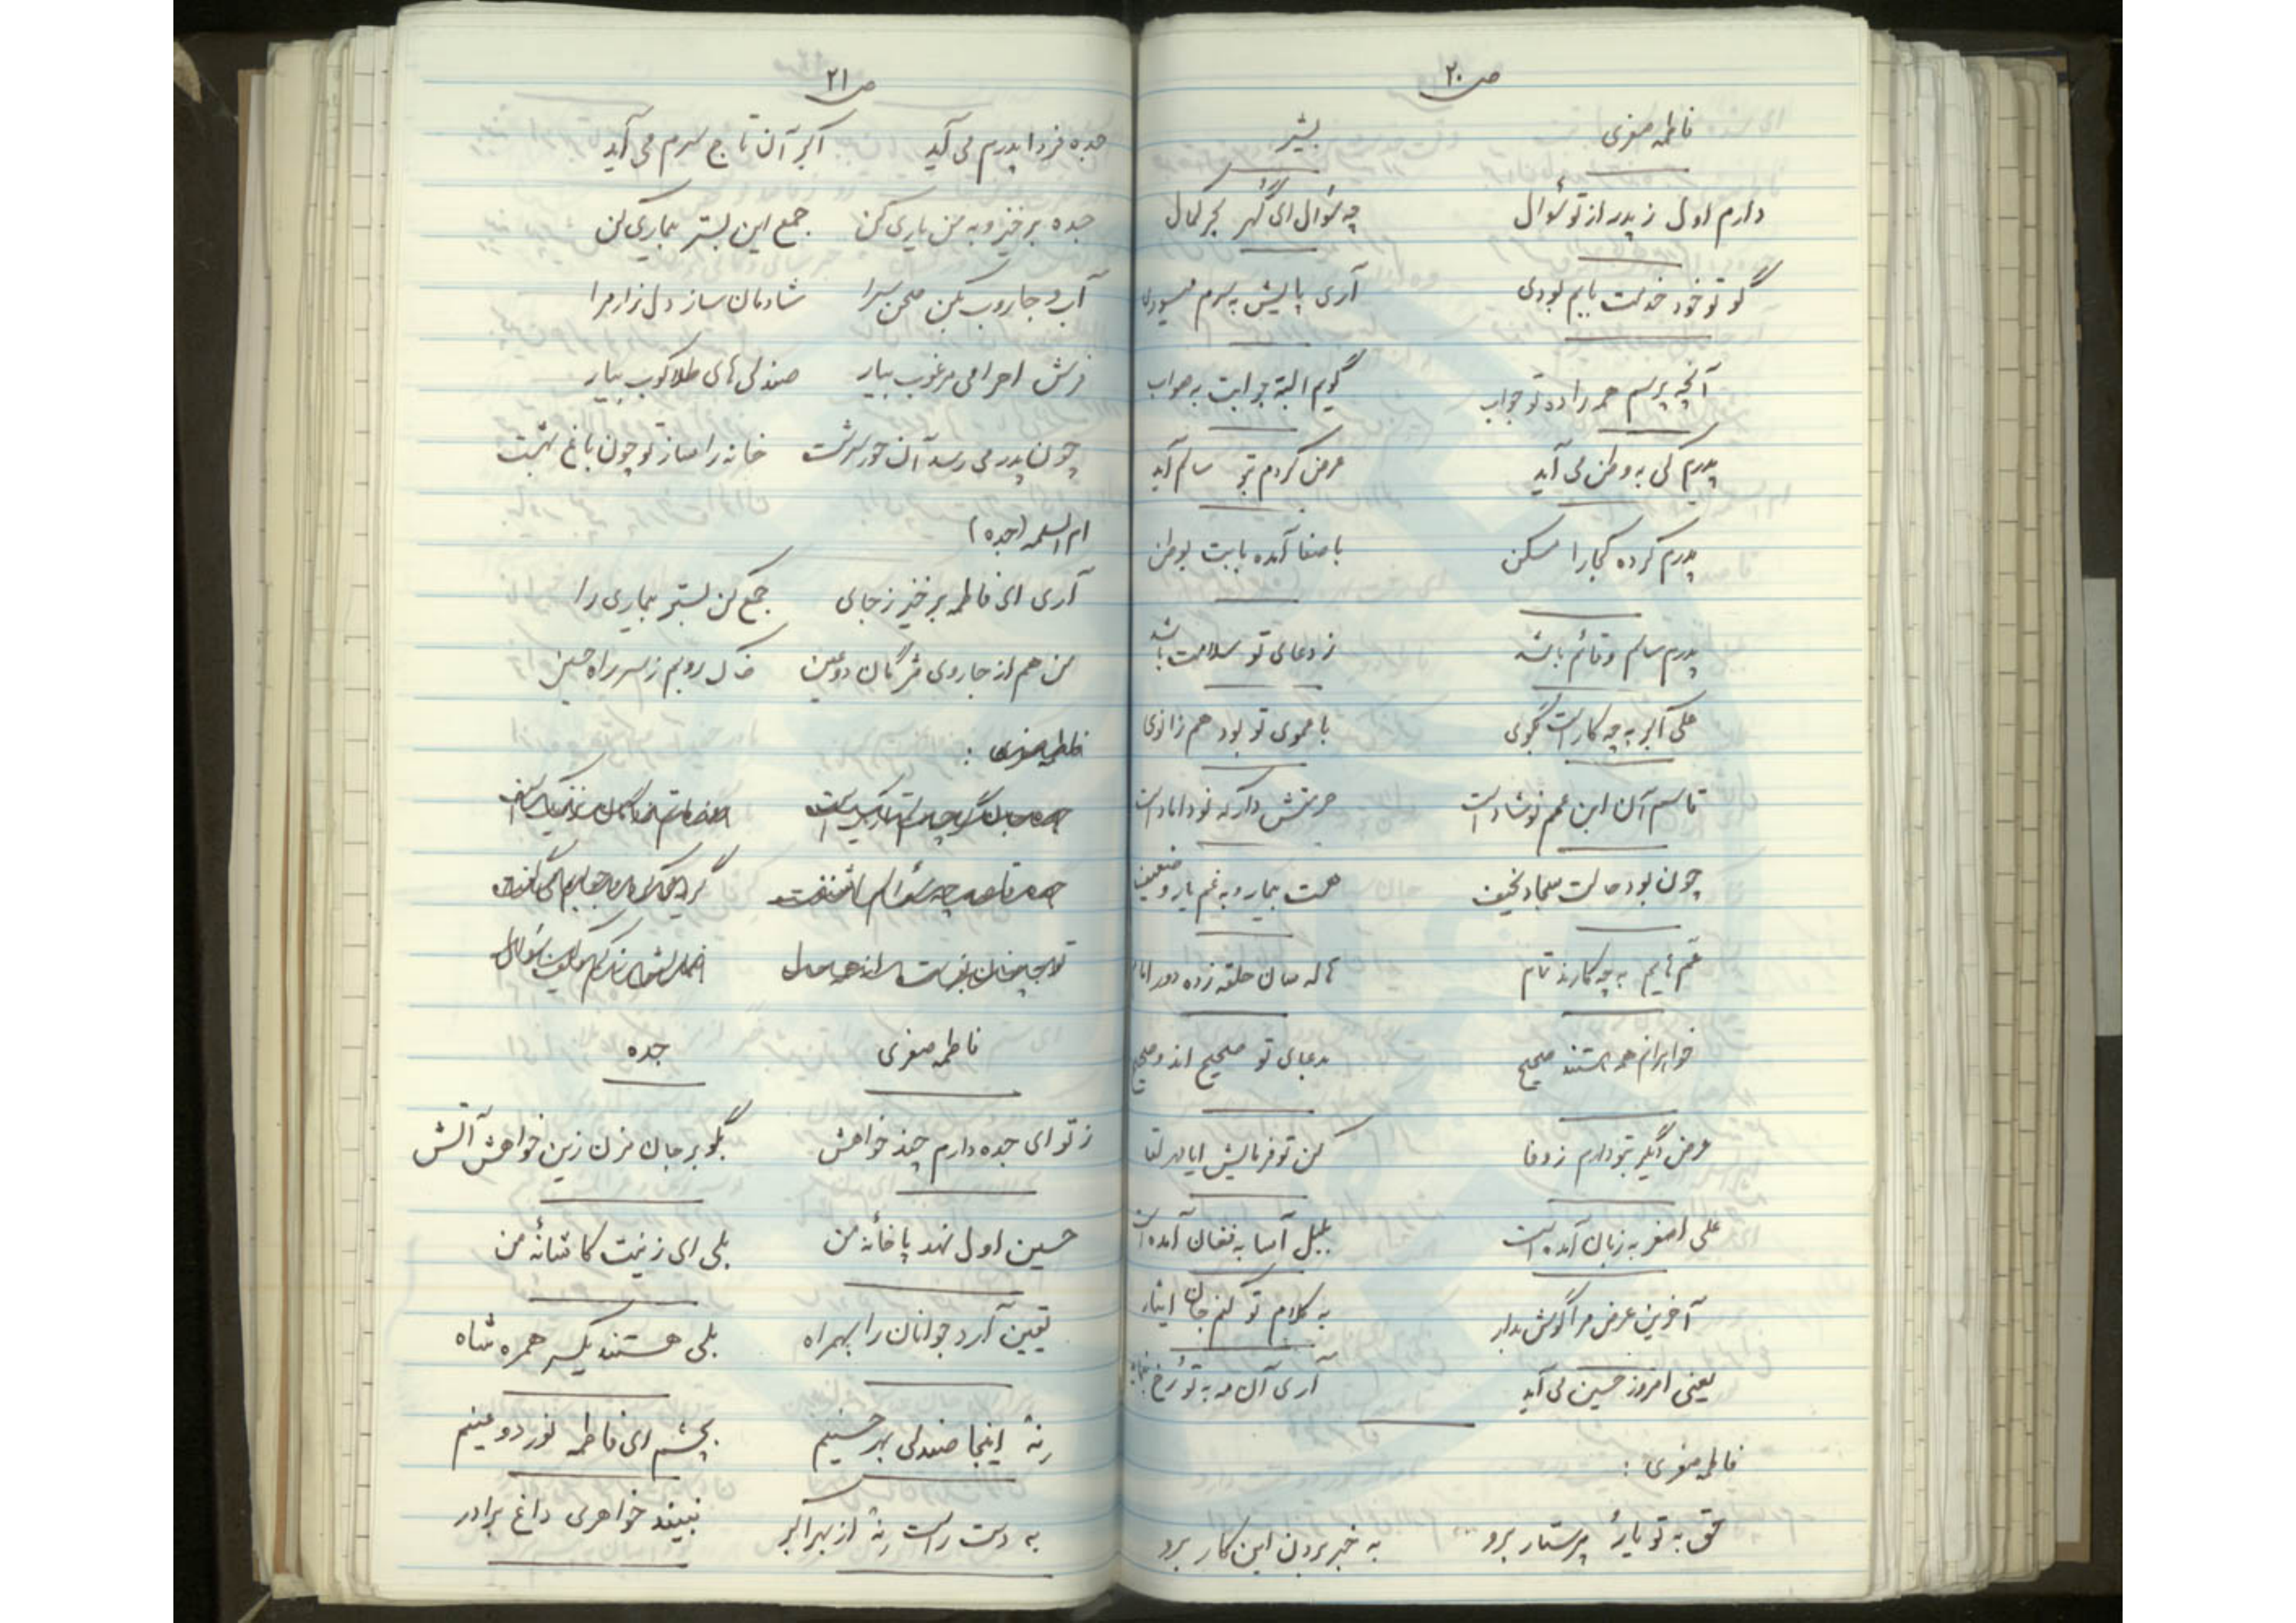 ص ۲۰
فاطمه صغری بشیر
دارم اول ز پدر از تو سؤال چه سؤال ای گهر بحر کمال
گو تو خود خدمت بابم بودی آری پایش به سرم میسودی
آنچه پرسم همه را ده تو جواب گویم البته جوابت به صواب
پدرم کی به وطن می آید عرض کردم بتو سالم آید
پدرم کرده کجا را مسکن با صفا آمده بابت بوطن
پدرم سالم و قائم باشد ز دعای تو سلامت باشد
علی اکبر به چه کار است بگوی با عموی تو بود هم زانوی
قاسم آن ابن عمم نوشاد است حرمتش دار که نوداماد است
چون بود حالت سجاد نحیف هست بیمار و به غم یار و ضعیف
عم هایم به چه کارند تمام هاله سان حلقه زده دور امام
خواهرانم همه هستند صحیح بدعای تو صحیح اند و صحیح
عرض دیگر بتو دارم ز وفا کن تو فرمایش ای ماه لقا
علی اصغر به زبان آمده است بلبل آسا به فغان آمده است
آخرین عرض مرا گوش بدار به کلام تو کنم جان ایثار
یعنی امروز حسین می آید آری آن مه به تو رخ بنماید
فاطمه صغری :
حق به تو یار پرستار برو به خبر بردن این کار برو
ص ۲۱
جده فردا پدرم می آید اکبر آن تاج سرم می آید
جده برخیز و به من یاری کن جمع این بستر بیماری کن
آب و جاروب بکن صحن سرا شادمان ساز دل زار مرا
فرش احرامی مرغوب بیار صندلی های طلاکوب بیار
چون پدر می رسد آن حور سرشت خانه را ساز تو چون باغ بهشت
ام السلمه (جده)
آری ای فاطمه برخیز ز جای جمع کن بستر بیماری را
من هم از جاروی مژگان دو عین خاک روبم ز سر راه حسین
فاطمه صغری :
فاطمه صغری جده
ز تو ای جده دارم چند خواهش بگو بر جان مزن زین خواهش آتش
حسین اول نهد پا خانهٔ من بلی ای زینت کاشانهٔ من
یقین آرد جوانان را بهمراه بلی هستند یکسر همره شاه
بنه اینجا صندلی بهر حسینم بچشم ای فاطمه نور دو عینم
به دست راست بنه از بهر اکبر نبیند خواهری داغ برادر